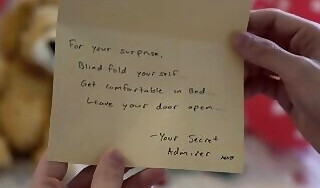 For your surprise,
Blindfold your self...
Get comfortable in Bed...
Leave your door open...
—Your Secret
Admirer